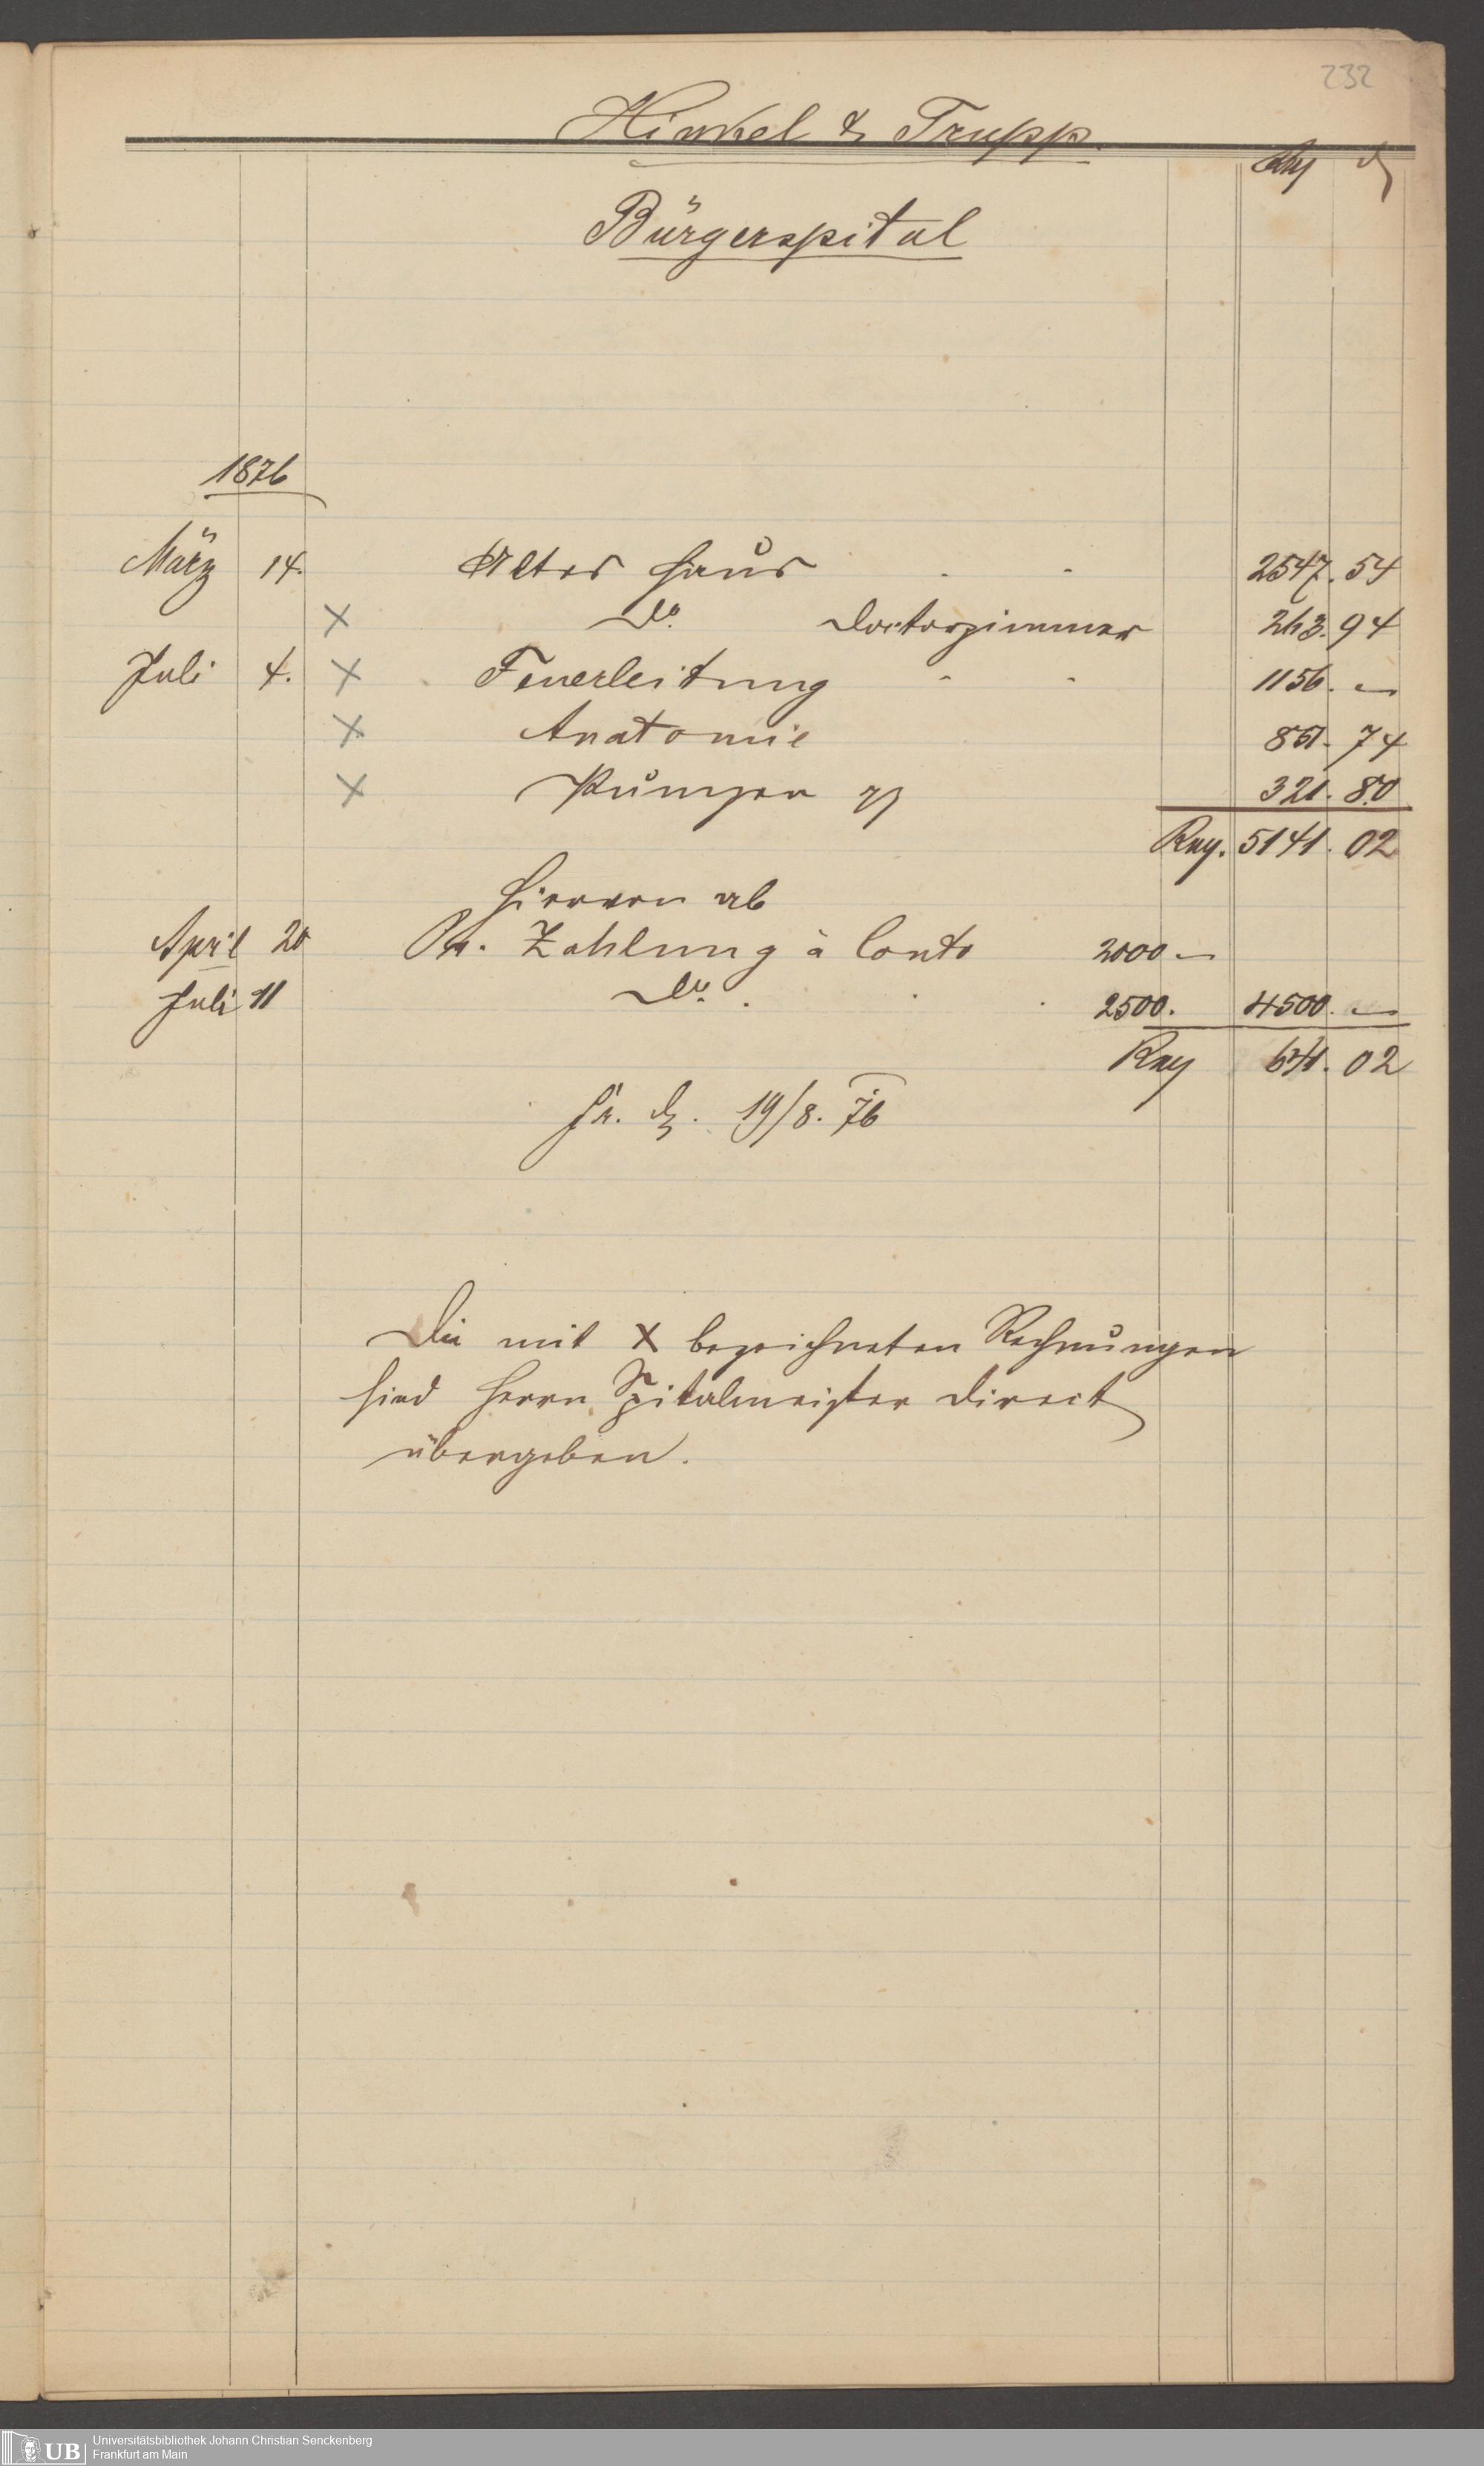 232
Hinkel & Trupp.
Rmk ₰
Bürgerspital
1876
März 14. Altes Haus 2547. 54
× do. Doctorzimmer 263. 94
Juli 4. × Feuerleitung 1156. —
× Anatomie 851. 74
× Pumpen 321. 80
Rmk. 5141. 02
Hiervon ab
April 20 Pr. Zahlung à Conto 2000 —
Juli 11 do. 2500. 4500. —
Rmk 641. 02
19/8. 76
Die mit × bezeichneten Rechnungen
sind Herrn Spitalmeister direct
übergeben.
UB
Universitätsbibliothek Johann Christian Senckenberg
Frankfurt am Main